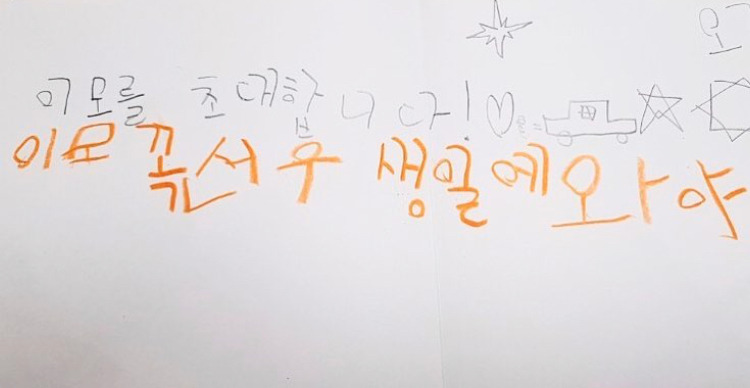 오
이모를 초대합니다!
이모 꼭 서우 생일에 와야